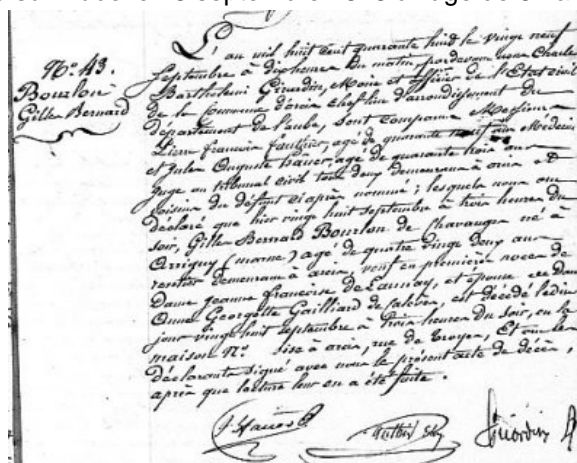 N.° 43.
Bourlon
Gilles Bernard
L'an mil huit cent quarante huit le vingt neuf
septembre à dix heures du matin, pardevant nous Charles
Barthelemi Girardin, Maire et officier de l'Etat civil
de la Commune d'arcis chef lieu d'arrondissement du
département de l'aube, sont comparus Messieurs
Pierre francois gautier, agé de quarante neuf ans Medecin
et Jules Auguste hauer, agé de quarante trois ans
Juge au tribunal civil tous deux demeurans à arcis et
voisins du défunt ci après nommé ; lesquels nous ont
declaré que hier vingt huit septembre à trois heures du
soir, Gilles Bernard Bourlon de Chavange né à
Arrigny (marne) agé de quatre vingt deux ans
rentier demeurant à arcis, veuf en premières noces de
Dame jeanne francoise de Launay, et époux de Dame
Anne Georgette Gailliard de est décédé ledit
jour vingt huit septembre à trois heures du soir, en la
maison N.° sise à arcis, rue de troyes, Et ont les
déclarants signé avec nous le présent acte de décès,
après que lecture leur en a été faite.
Girardin